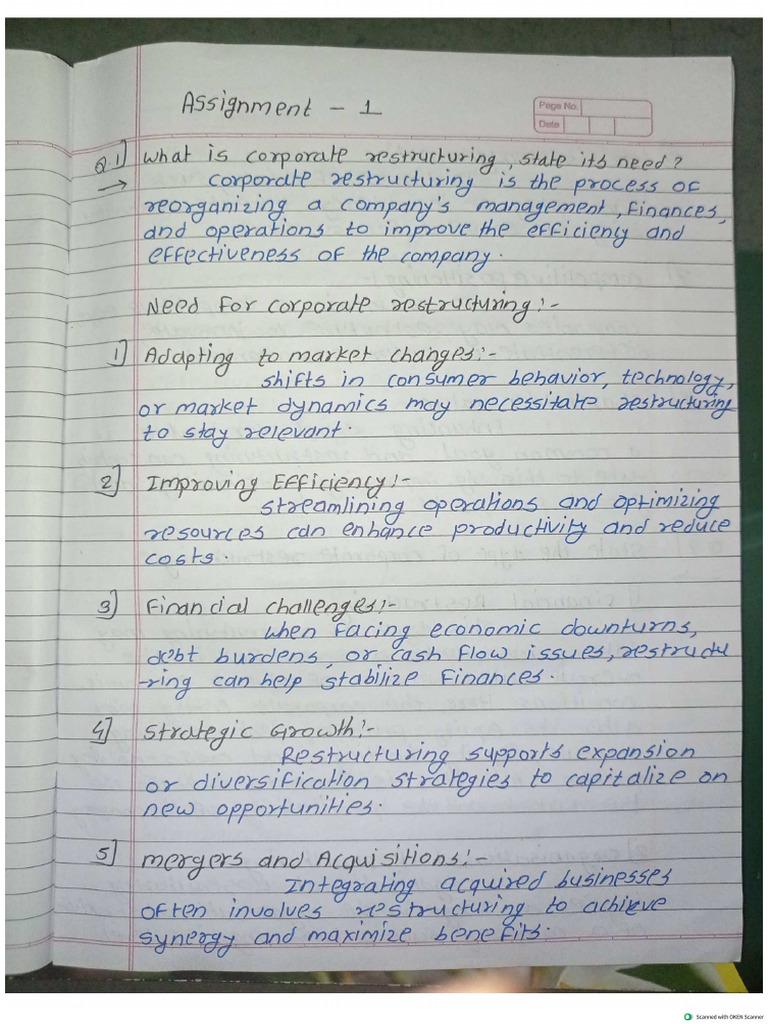 Assignment - 1
Page No.
Date
Q.1] What is corporate restructuring, state its need?
→ corporate restructuring is the process of
reorganizing a company's management, finances,
and operations to improve the efficiency and
effectiveness of the company.
Need for corporate restructuring:-
1] Adapting to market changes:-
shifts in consumer behavior, technology,
or market dynamics may necessitate restructuring
to stay relevant.
2] Improving Efficiency:-
streamlining operations and optimizing
resources can enhance productivity and reduce
costs.
3] Financial challenges:-
when facing economic downturns,
debt burdens, or cash flow issues, restructu
-ring can help stabilize finances.
4] Strategic Growth:-
Restructuring supports expansion
or diversification strategies to capitalize on
new opportunities.
5] mergers and Acquisitions:-
Integrating acquired businesses
often involves restructuring to achieve
synergy and maximize benefits.
Scanned with OKEN Scanner